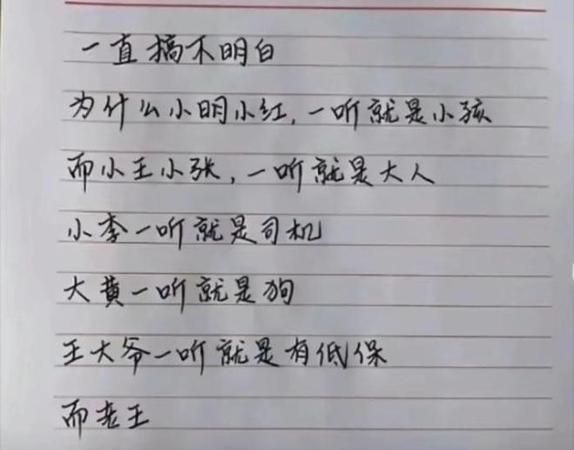 一直搞不明白
为什么小明小红,一听就是小孩
而小王小张,一听就是大人
小李一听就是司机
大黄一听就是狗
王大爷一听就是有低保
而老王